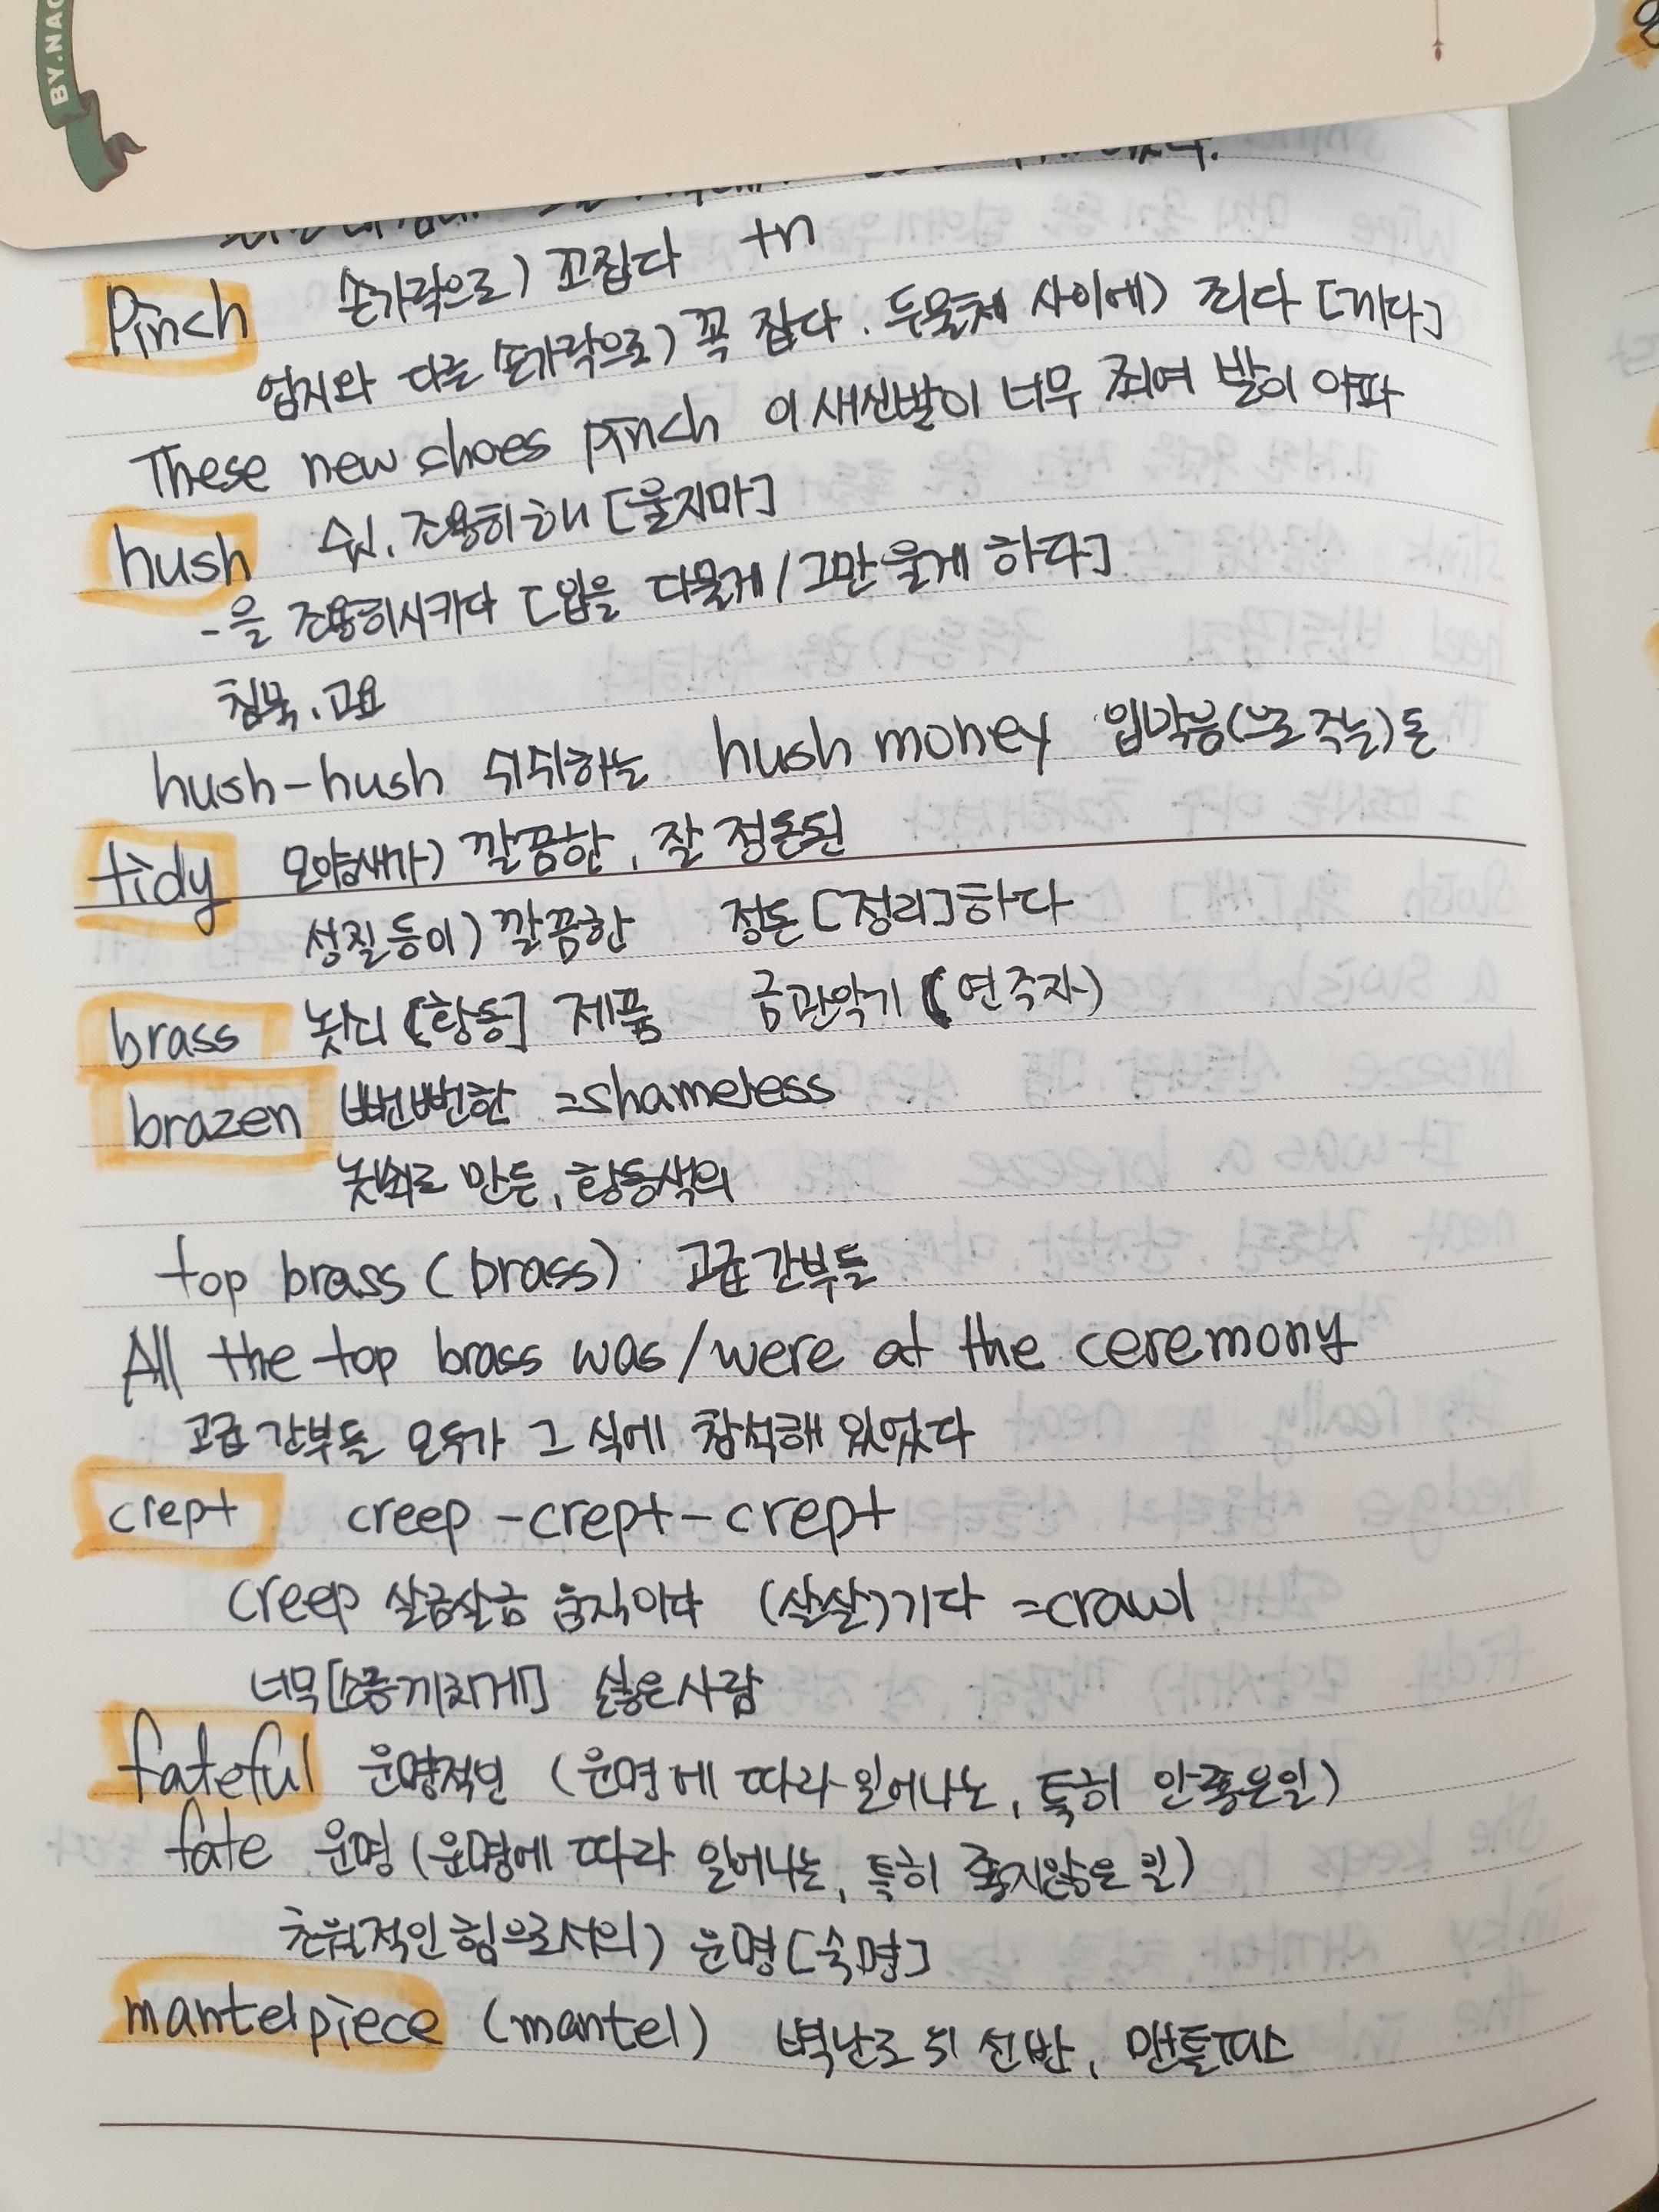 BY.NAC
pinch 손가락으로) 꼬집다 +n
엄지와 다른 손가락으로) 꼭 잡다. 두물체 사이에) 죄다 [끼다]
These new shoes pinch 이 새신발이 너무 죄여 발이 아파
hush 쉿, 조용히 해 [울지마]
-을 조용히시키다 [입을 다물게/그만 울게 하다]
침묵, 고요
hush-hush 쉬쉬하는 hush money 입막음(으로 주는)돈
tidy 모양새가) 깔끔한, 잘 정돈된
성질 등이) 깔끔한 정돈[정리]하다
brass 놋쇠 [황동] 제품 금관악기 (연주자)
brazen 뻔뻔한 =shameless
놋쇠로 만든, 황동색의
top brass (brass) 고급 간부들
All the top brass was/were at the ceremony
고급 간부들 모두가 그 식에 참석해 있었다
crept creep -crept-crept
creep 살금살금 움직이다 (살살)기다 =crawl
너무[소름끼치게] 싫은사람
fateful 운명적인 (운명에 따라 일어나는, 특히 안좋은일)
fate 운명 (운명에 따라 일어나는, 특히 좋지않은 일)
초월적인 힘으로서의) 운명[숙명]
mantelpiece (mantel) 벽난로 위 선반, 맨틀피스